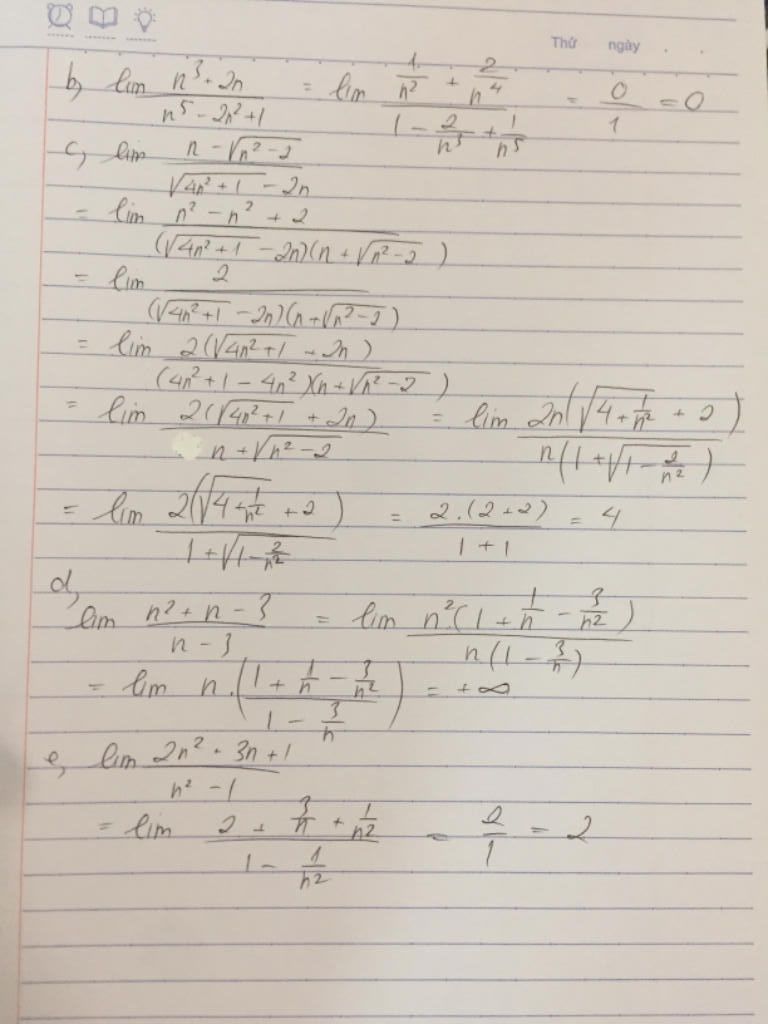 Thứ ngày . .
b, lim (n³ + 2n)/(n⁵ - 2n² + 1) = lim (1/n² + 2/n⁴)/(1 - 2/n³ + 1/n⁵) = 0/1 = 0
c, lim (n - √(n² - 2))/(√(4n² + 1) - 2n)
= lim (n² - n² + 2)/((√(4n² + 1) - 2n)(n + √(n² - 2)))
= lim 2/((√(4n² + 1) - 2n)(n + √(n² - 2)))
= lim 2(√(4n² + 1) + 2n)/((4n² + 1 - 4n²)(n + √(n² - 2)))
= lim 2(√(4n² + 1) + 2n)/(n + √(n² - 2)) = lim 2n(√(4 + 1/n²) + 2)/(n(1 + √(1 - 2/n²)))
= lim 2(√(4 + 1/n²) + 2)/(1 + √(1 - 2/n²)) = 2.(2 + 2)/(1 + 1) = 4
d,
lim (n² + n - 3)/(n - 3) = lim n².(1 + 1/n - 3/n²)/(n(1 - 3/n))
= lim n.((1 + 1/n - 3/n²)/(1 - 3/n)) = +∞
e, lim (2n² + 3n + 1)/(n² - 1)
= lim (2 + 3/n + 1/n²)/(1 - 1/n²) = 2/1 = 2